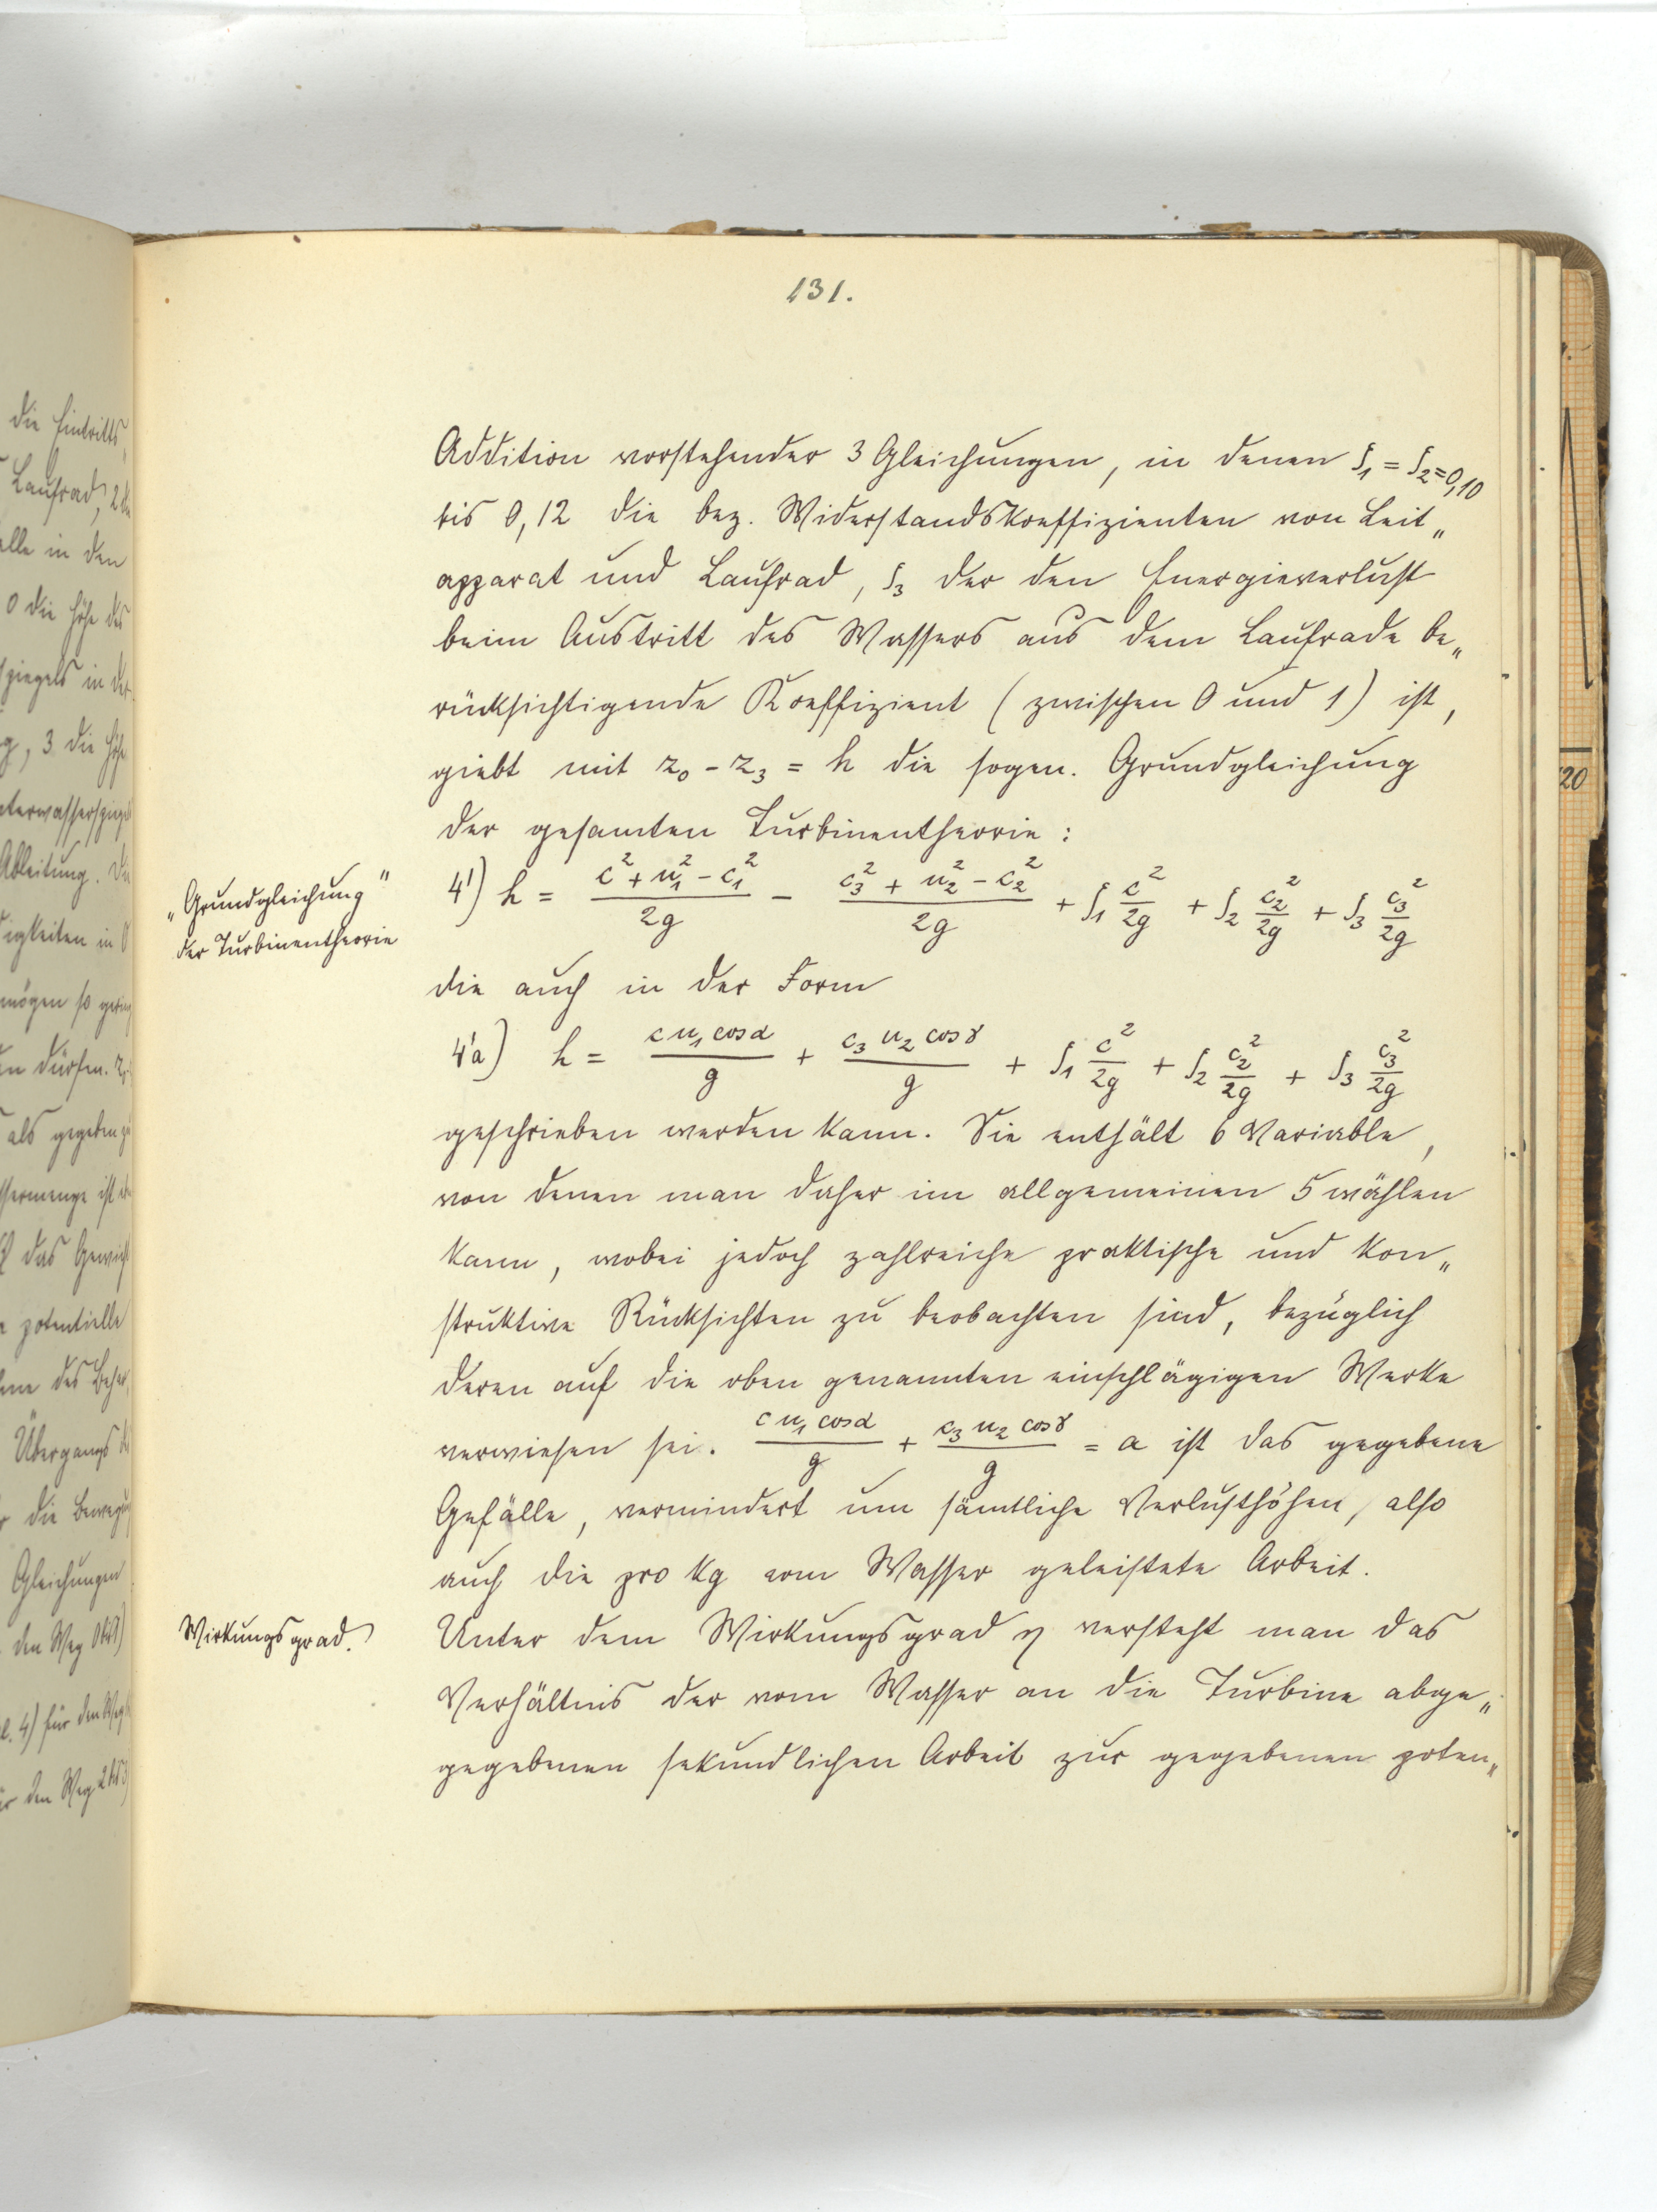 131.
Addition vorstehender 3 Gleichungen, in denen ζ₁ = ζ₂ = 0,10
bis 0,12 die bez. Widerstandskoeffizienten von Leit„
apparat und Laufrad, ζ₃ der den Energieverlust
beim Austritt des Wassers aus dem Laufrade be„
rücksichtigende Koeffizient (zwischen 0 und 1) ist,
giebt mit z₀ - z₃ = h die sogen. Grundgleichung
der gesamten Turbinentheorie:
„Grundgleichung"
der Turbinentheorie
4') h = (c² + u₁² - c₁²)/2g - (c₃² + u₂² - c₂²)/2g + ζ₁ c²/2g + ζ₂ c₂²/2g + ζ₃ c₃²/2g
die auch in der Form
4'a) h = c u₁ cos α/g + c₃ u₂ cos γ/g + ζ₁ c²/2g + ζ₂ c₂²/2g + ζ₃ c₃²/2g
geschrieben werden kann. Sie enthält 6 Variable,
von denen man daher im allgemeinen 5 wählen
kann, wobei jedoch zahlreiche praktische und kon„
struktive Rücksichten zu beobachten sind, bezüglich
deren auf die oben genannten einschlägigen Werke
verwiesen sei. c u₁ cos α/g + c₃ u₂ cos γ/g = a ist das gegebene
Gefälle, vermindert um sämtliche Verlusthöhen, also
auch die pro kg vom Wasser geleistete Arbeit.
Wirkungsgrad.
Unter dem Wirkungsgrad η versteht man das
Verhältnis der vom Wasser an die Turbine abge„
gegebenen sekundlichen Arbeit zur gegebenen poten„
die Eintritts
Laufrad, 2
in den
0 die Höhe des
spiegels in der
3 die Höhe
Ableitung. Die
in 0
mögen so gering
dürfen.
als gegeben
ist
das Gewicht
potentielle
des
Übergangs
die Bewegung
Gleichungen
den Weg 0 bis 1)
4) für den Weg
den Weg 2 bis 3)
20